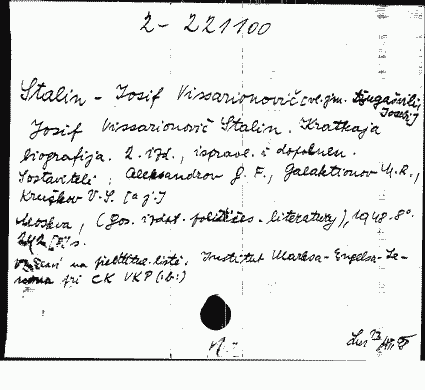 2-221100
Stalin - Iosif Vissarionovič [vl. jm. Džugašvili, Iosif]
Iosif Vissarionovič Stalin. Kratkaja
biografija. 2. izd., isprave. i dopolnen.
Sostaviteli: Aleksandrov G. F., Galaktionov M. R.,
Kružkov V. S. [a j.]
Moskva, (Gos. izdat. politikes. literatury), 1948. 8°.
242 [2] s.
na list. Institut Marksa-Engelsa-Le-
nina pri CK VKP (:b:)